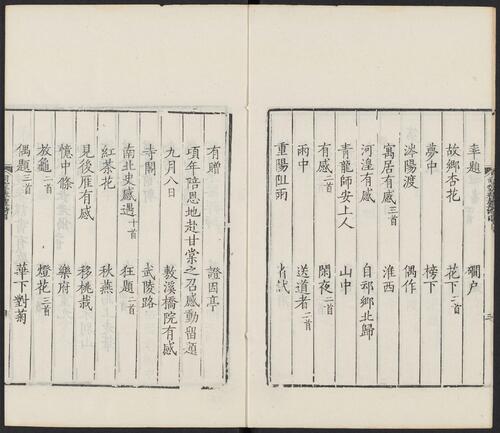 率題 獨户
故鄉杏花 花下二首
夢中 榜下
涔陽渡 偶作
寓居有感三首 淮西
河湟有感 自邠鄉北歸
青龍師安上人 山中
有感二首 閑夜二首
雨中 送道者二首
重陽阻雨
有贈 證因亭
頃年陪恩地赴甘棠之召感動留題
九月八日 敷溪橋院有感
寺閣 武陵路
南北史感遇十首 狂題二首
紅茶花 秋燕
見後雁有感 移桃栽
憶中條 樂府
放龜二首 燈花三首
偶題二首 華下對菊